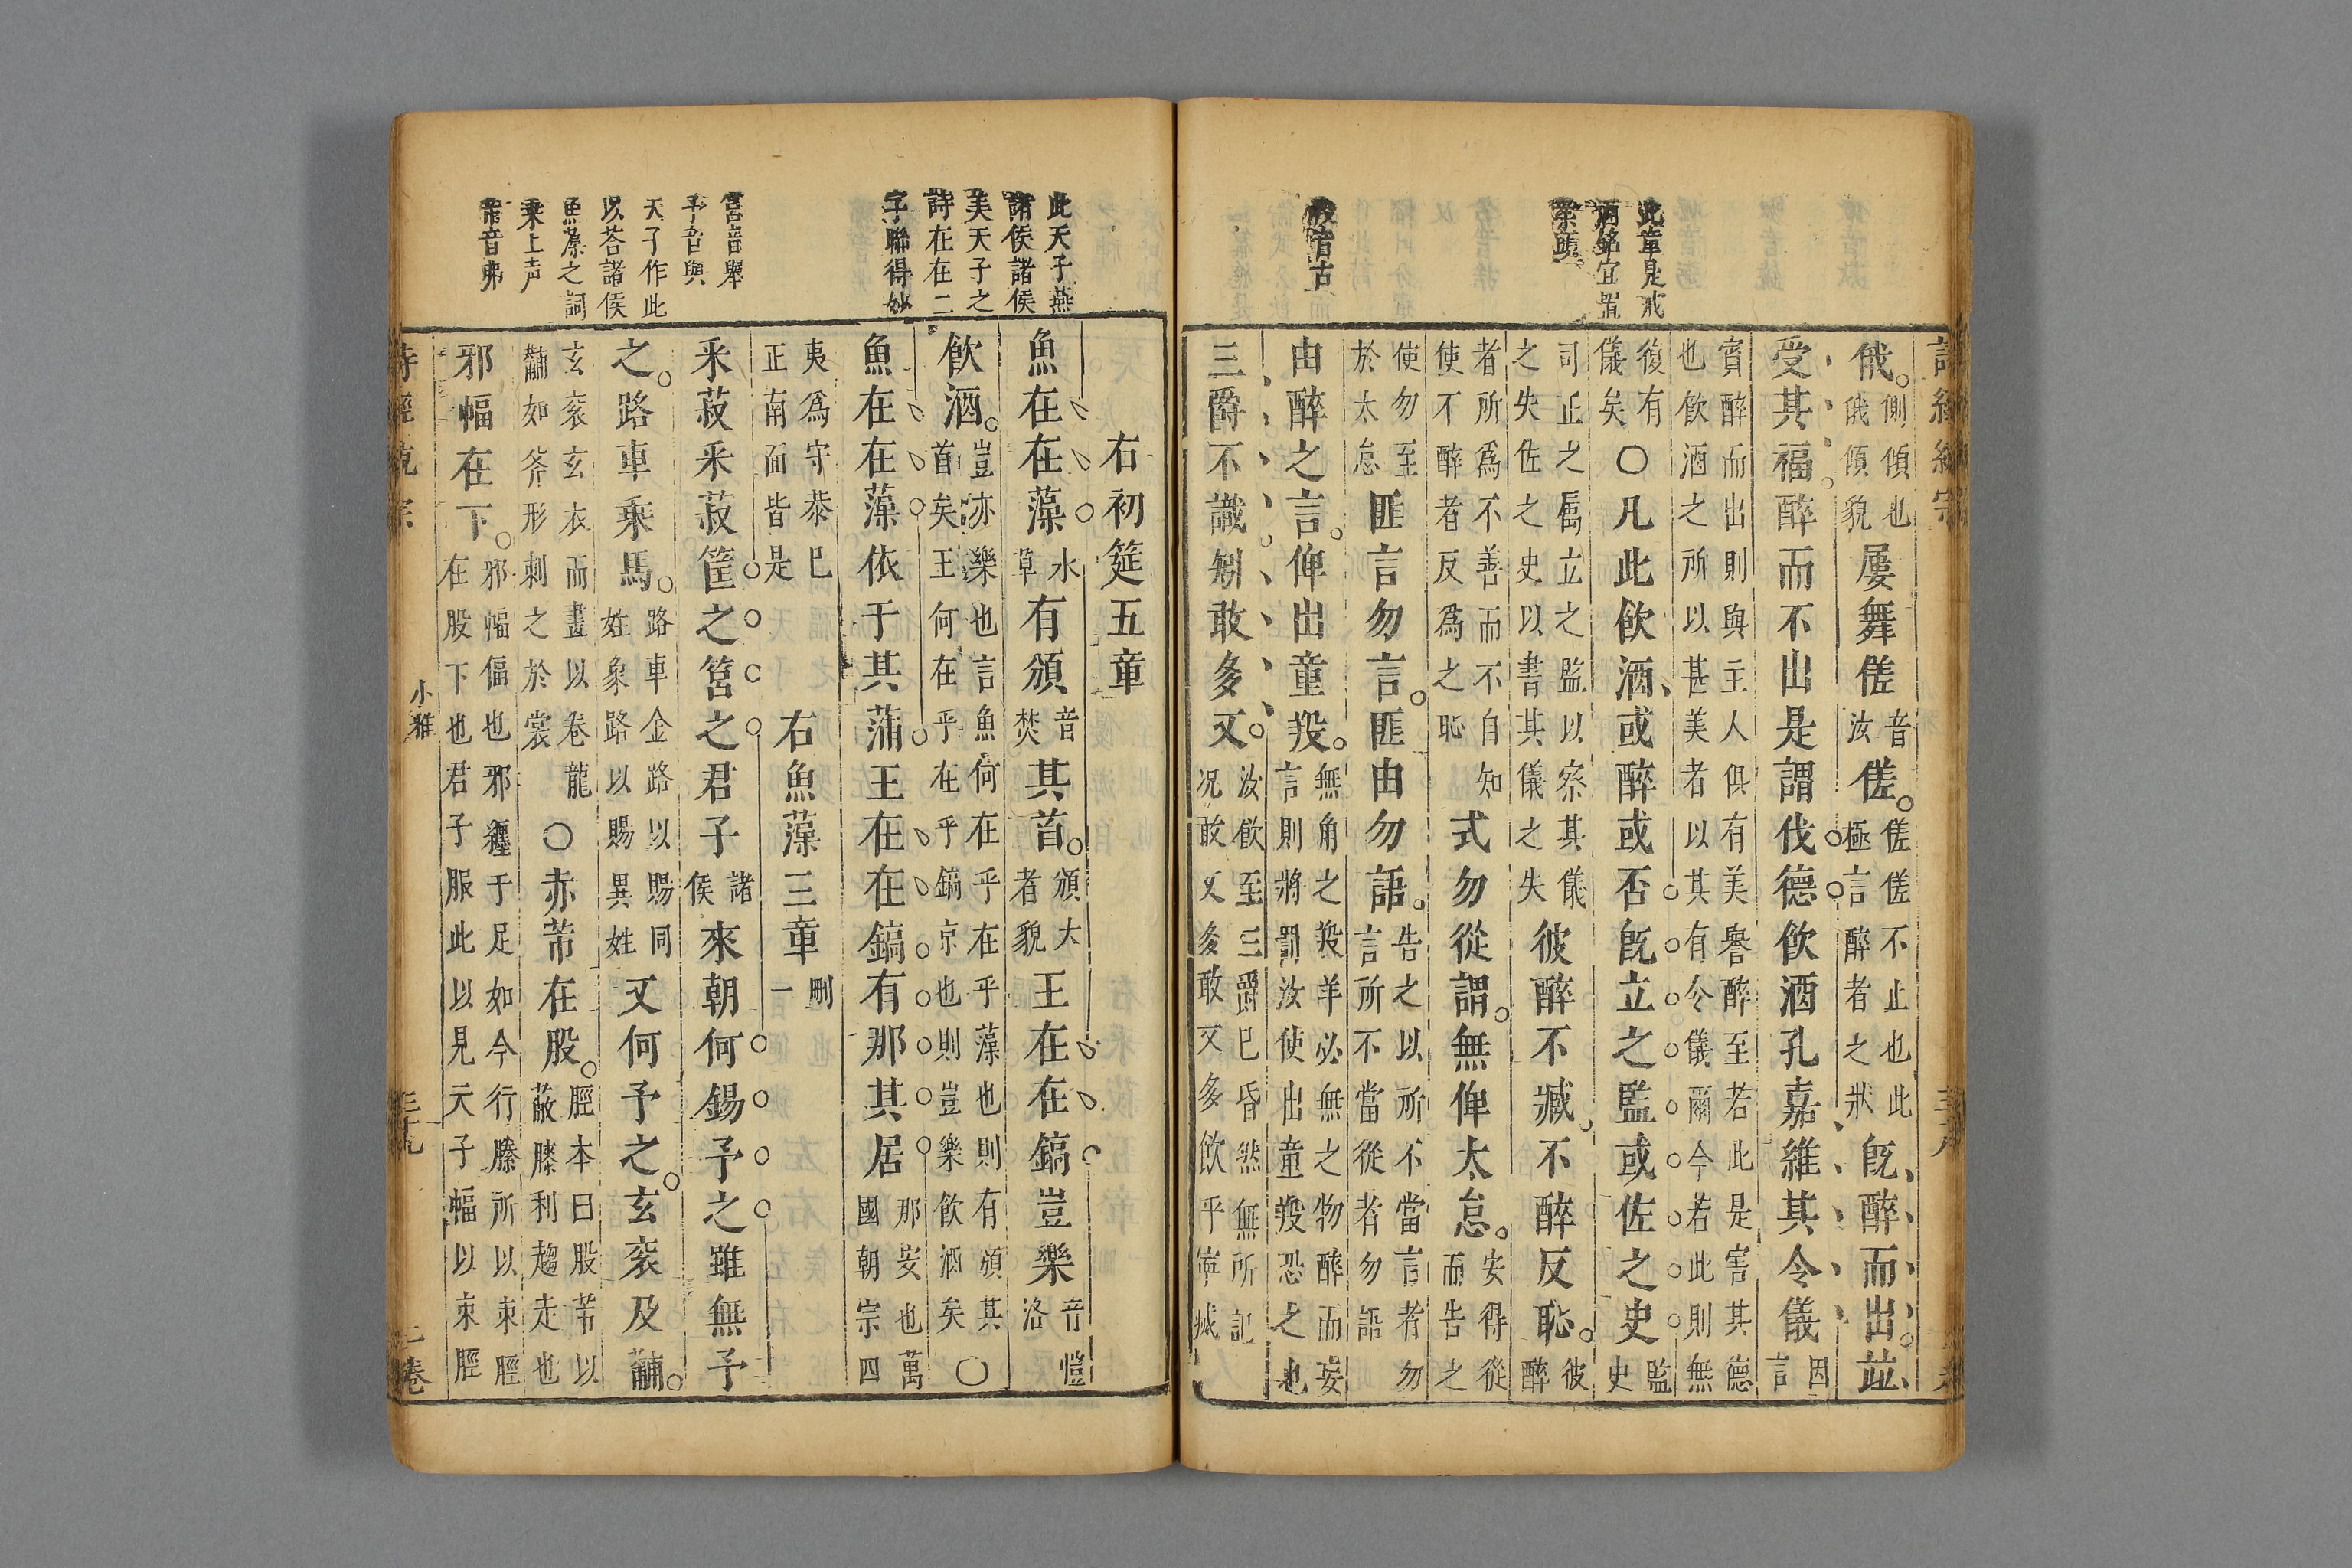 此章是戒
酒銘宜置
羖音古
俄側傾也俄傾貌屢舞傞音汝傞傞傞不止也此極言醉者之狀既醉而出並
受其福醉而不出是謂伐德飲酒孔嘉維其令儀因言
賓醉而出則與主人俱有美譽醉至若此是害其德
也飲酒之所以甚美者以其有令儀爾今若此則無
復有儀矣○凡此飲酒或醉或否既立之監或佐之史監史
司正之屬立之監以察其儀
之失佐之史以書其儀之失彼醉不臧不醉反恥彼醉
者所為不善而不自知
使不醉者反為之恥式勿從謂無俾太怠安得從而告之
使勿至於太怠匪言勿言匪由勿語告之以所不當言者勿言所不當從者勿語
由醉之言俾出童羖無角之羖羊必無之物醉而妄言則將罰汝使出童羖恐之也
三爵不識矧敢多又汝飲至三爵已昏然無所記况敢又多敢又多飲乎寧城
此天子燕
諸侯諸侯
美天子之
詩在在二
字聯得妙
筥音舉
予音與
天子作此
以荅諸侯
魚藻之詞
乘上声
芾音弗
右初筵五章
魚在在藻水草有頒音焚其首頒大者貌王在在鎬豈樂音愷洛
飲酒豈亦樂也言魚何在乎在乎藻也則有頒其首矣王何在乎在乎鎬京也則豈樂飲酒矣○
魚在在藻依于其蒲王在在鎬有那其居那安也萬國朝宗四
夷為守恭已正南面皆是右魚藻三章刪一
采菽采菽筐之筥之君子諸侯來朝何錫予之雖無予
之路車乘馬路車金路以賜同姓象路以賜異姓又何予之玄衮及黼
玄衮玄衣而畫以卷龍
黼如斧形刺之於裳○赤芾在股脛本曰股芾以蔽膝利趨走也
邪幅在下邪幅偪也邪纏于足如今行縢所以束脛在股下也君子服此以見天子幅以束脛
小雅